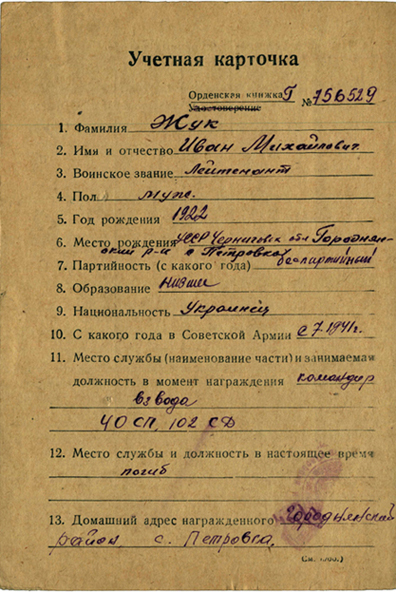 Учетная карточка
Орденская книжка Г №756529
Удостоверение
1. Фамилия Жук
2. Имя и отчество Иван Михайлович
3. Воинское звание Лейтенант
4. Пол муж.
5. Год рождения 1922
6. Место рождения УССР Черниговск обл Городнян-
ский р-н с Петровка
7. Партийность (с какого года) беспартийный
8. Образование низшее
9. Национальность Украинец
10. С какого года в Советской Армии с 7.1941г.
11. Место службы (наименование части) и занимаемая
должность в момент награждения командир
взвода
40 СП, 102 СД
12. Место службы и должность в настоящее время
погиб
13. Домашний адрес награжденного Городнянский
район, с. Петровка.
См. /об./)